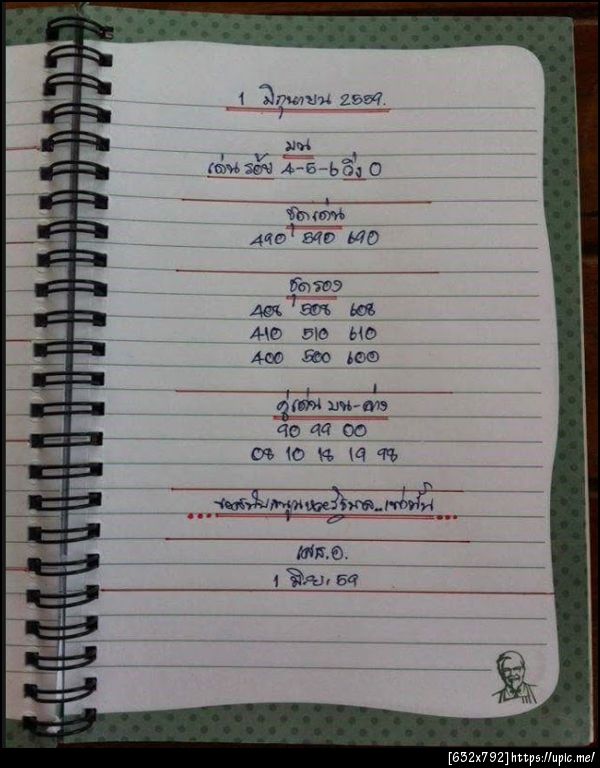 1 มิถุนายน 2559.
บน
เด่น ร้อย 4-5-6 วิ่ง 0
ชุดเด่น
490 590 690
ชุดรอง
408 508 608
410 510 610
400 500 600
คู่เด่น บน-ล่าง
90 99 00
08 10 18 19 98
เสธ.อ.
1 มิ.ย. 59
[632x792]https://upic.me/